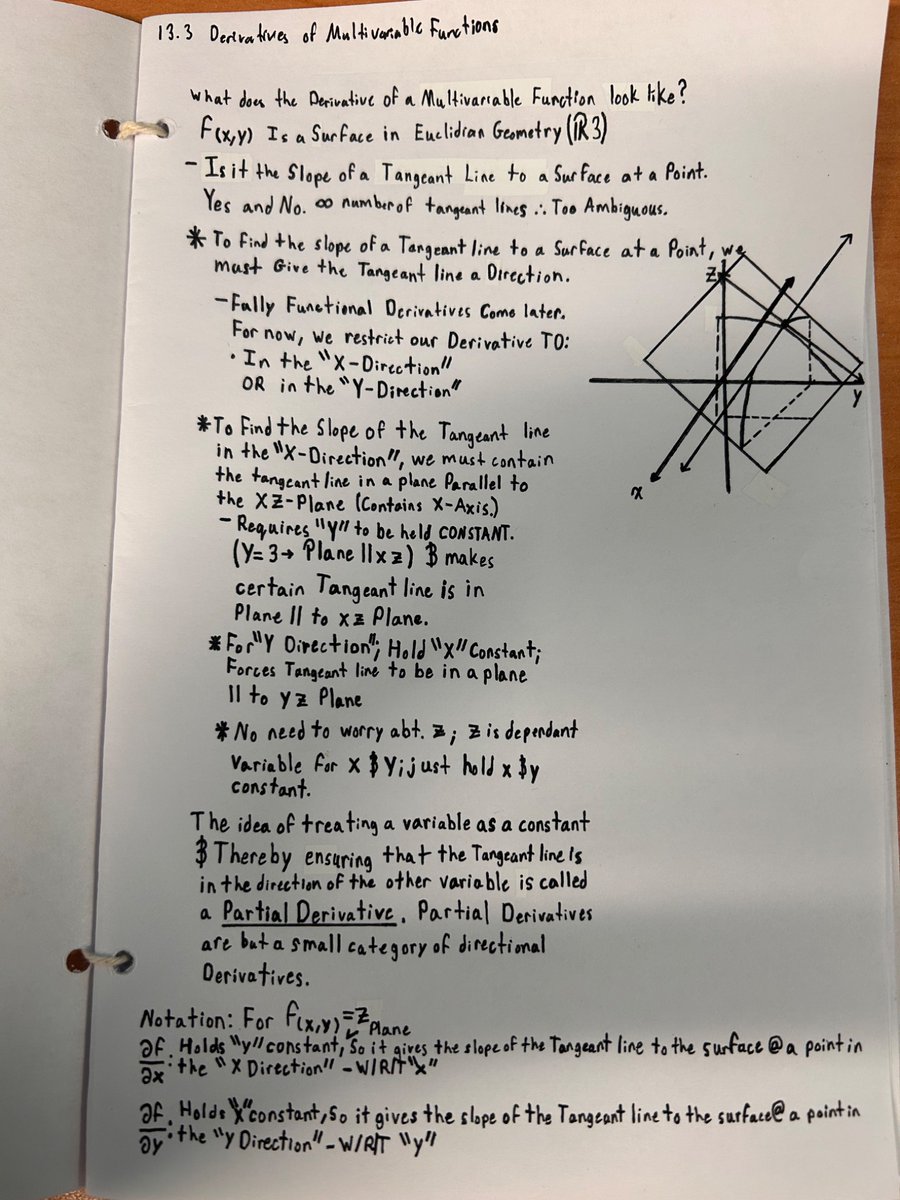 13.3 Derivatives of Multivariable Functions
What does the Derivative of a Multivariable Function look like?
f(x,y) Is a Surface in Euclidian Geometry (ℝ3)
- Is it the Slope of a Tangeant Line to a Surface at a Point.
Yes and No. ∞ number of tangeant lines ∴ Too Ambiguous.
* To Find the slope of a Tangeant line to a Surface at a Point, we
must Give the Tangeant line a Direction.
- Fully Functional Derivatives Come later.
For now, we restrict our Derivative TO:
• In the "X-Direction"
OR in the "Y-Direction"
z
y
x
* To Find the Slope of the Tangeant line
in the "X-Direction", we must contain
the tangeant line in a plane Parallel to
the XZ-Plane (Contains X-Axis.)
- Requires "y" to be held CONSTANT.
(Y=3→ Plane || xz) & makes
certain Tangeant line is in
Plane || to xz Plane.
* For "Y Direction"; Hold "X" Constant;
Forces Tangeant line to be in a plane
|| to yz Plane
* No need to worry abt. z; z is dependant
Variable for x & y; just hold x & y
constant.
The idea of treating a variable as a constant
& Thereby ensuring that the Tangeant line is
in the direction of the other variable is called
a Partial Derivative. Partial Derivatives
are but a small category of directional
Derivatives.
Notation: For f(x,y)=z Plane
∂f/∂x: Holds "y" constant, So it gives the slope of the Tangeant line to the surface @ a point in
the "X Direction" - W/R/T "x"
∂f/∂y: Holds "X" constant, So it gives the slope of the Tangeant line to the surface @ a point in
the "y Direction" - W/R/T "y"